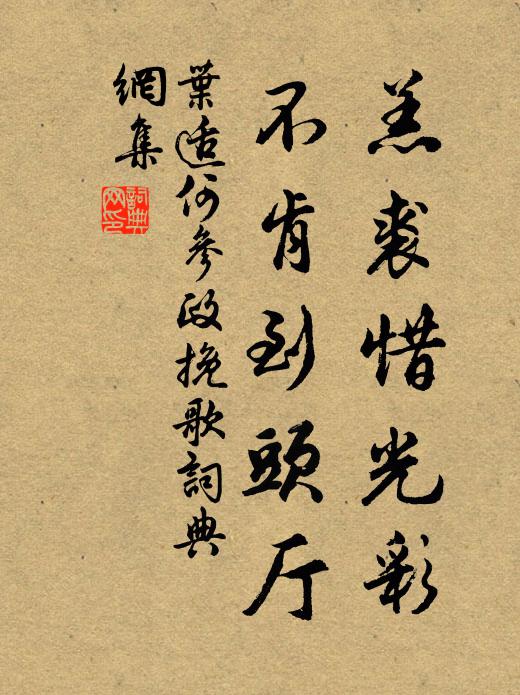 羔裘惜光彩
不肯到頭厅
葉适何參政挽歌詞典
網集
詞典網印